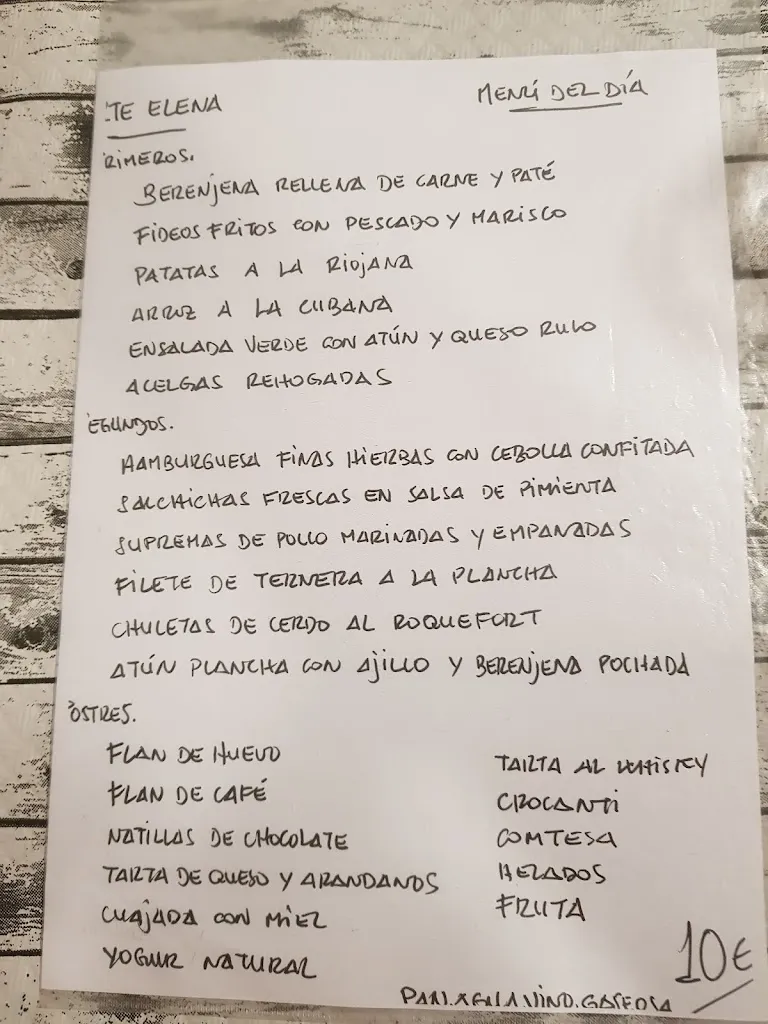 TE ELENA
MENÚ DEL DÍA
RIMEROS.
BERENJENA RELLENA DE CARNE Y PATÉ
FIDEOS FRITOS CON PESCADO Y MARISCO
PATATAS A LA RIOJANA
ARROZ A LA CUBANA
ENSALADA VERDE CON ATÚN Y QUESO RULO
ACELGAS REHOGADAS
EGUNDOS.
HAMBURGUESA FINAS HIERBAS CON CEBOLLA CONFITADA
SALCHICHAS FRESCAS EN SALSA DE PIMIENTA
SUPREMAS DE POLLO MARINADAS Y EMPANADAS
FILETE DE TERNERA A LA PLANCHA
CHULETAS DE CERDO AL ROQUEFORT
ATÚN PLANCHA CON AJILLO Y BERENJENA POCHADA
OSTRES.
FLAN DE HUEVO
FLAN DE CAFÉ
NATILLAS DE CHOCOLATE
TARTA DE QUESO Y ARANDANOS
CUAJADA CON MIEL
YOGUR NATURAL
TARTA AL WHISKY
CROCANTI
COMTESA
HELADOS
FRUTA
10€
PAN. AGUA. VINO. GASEOSA